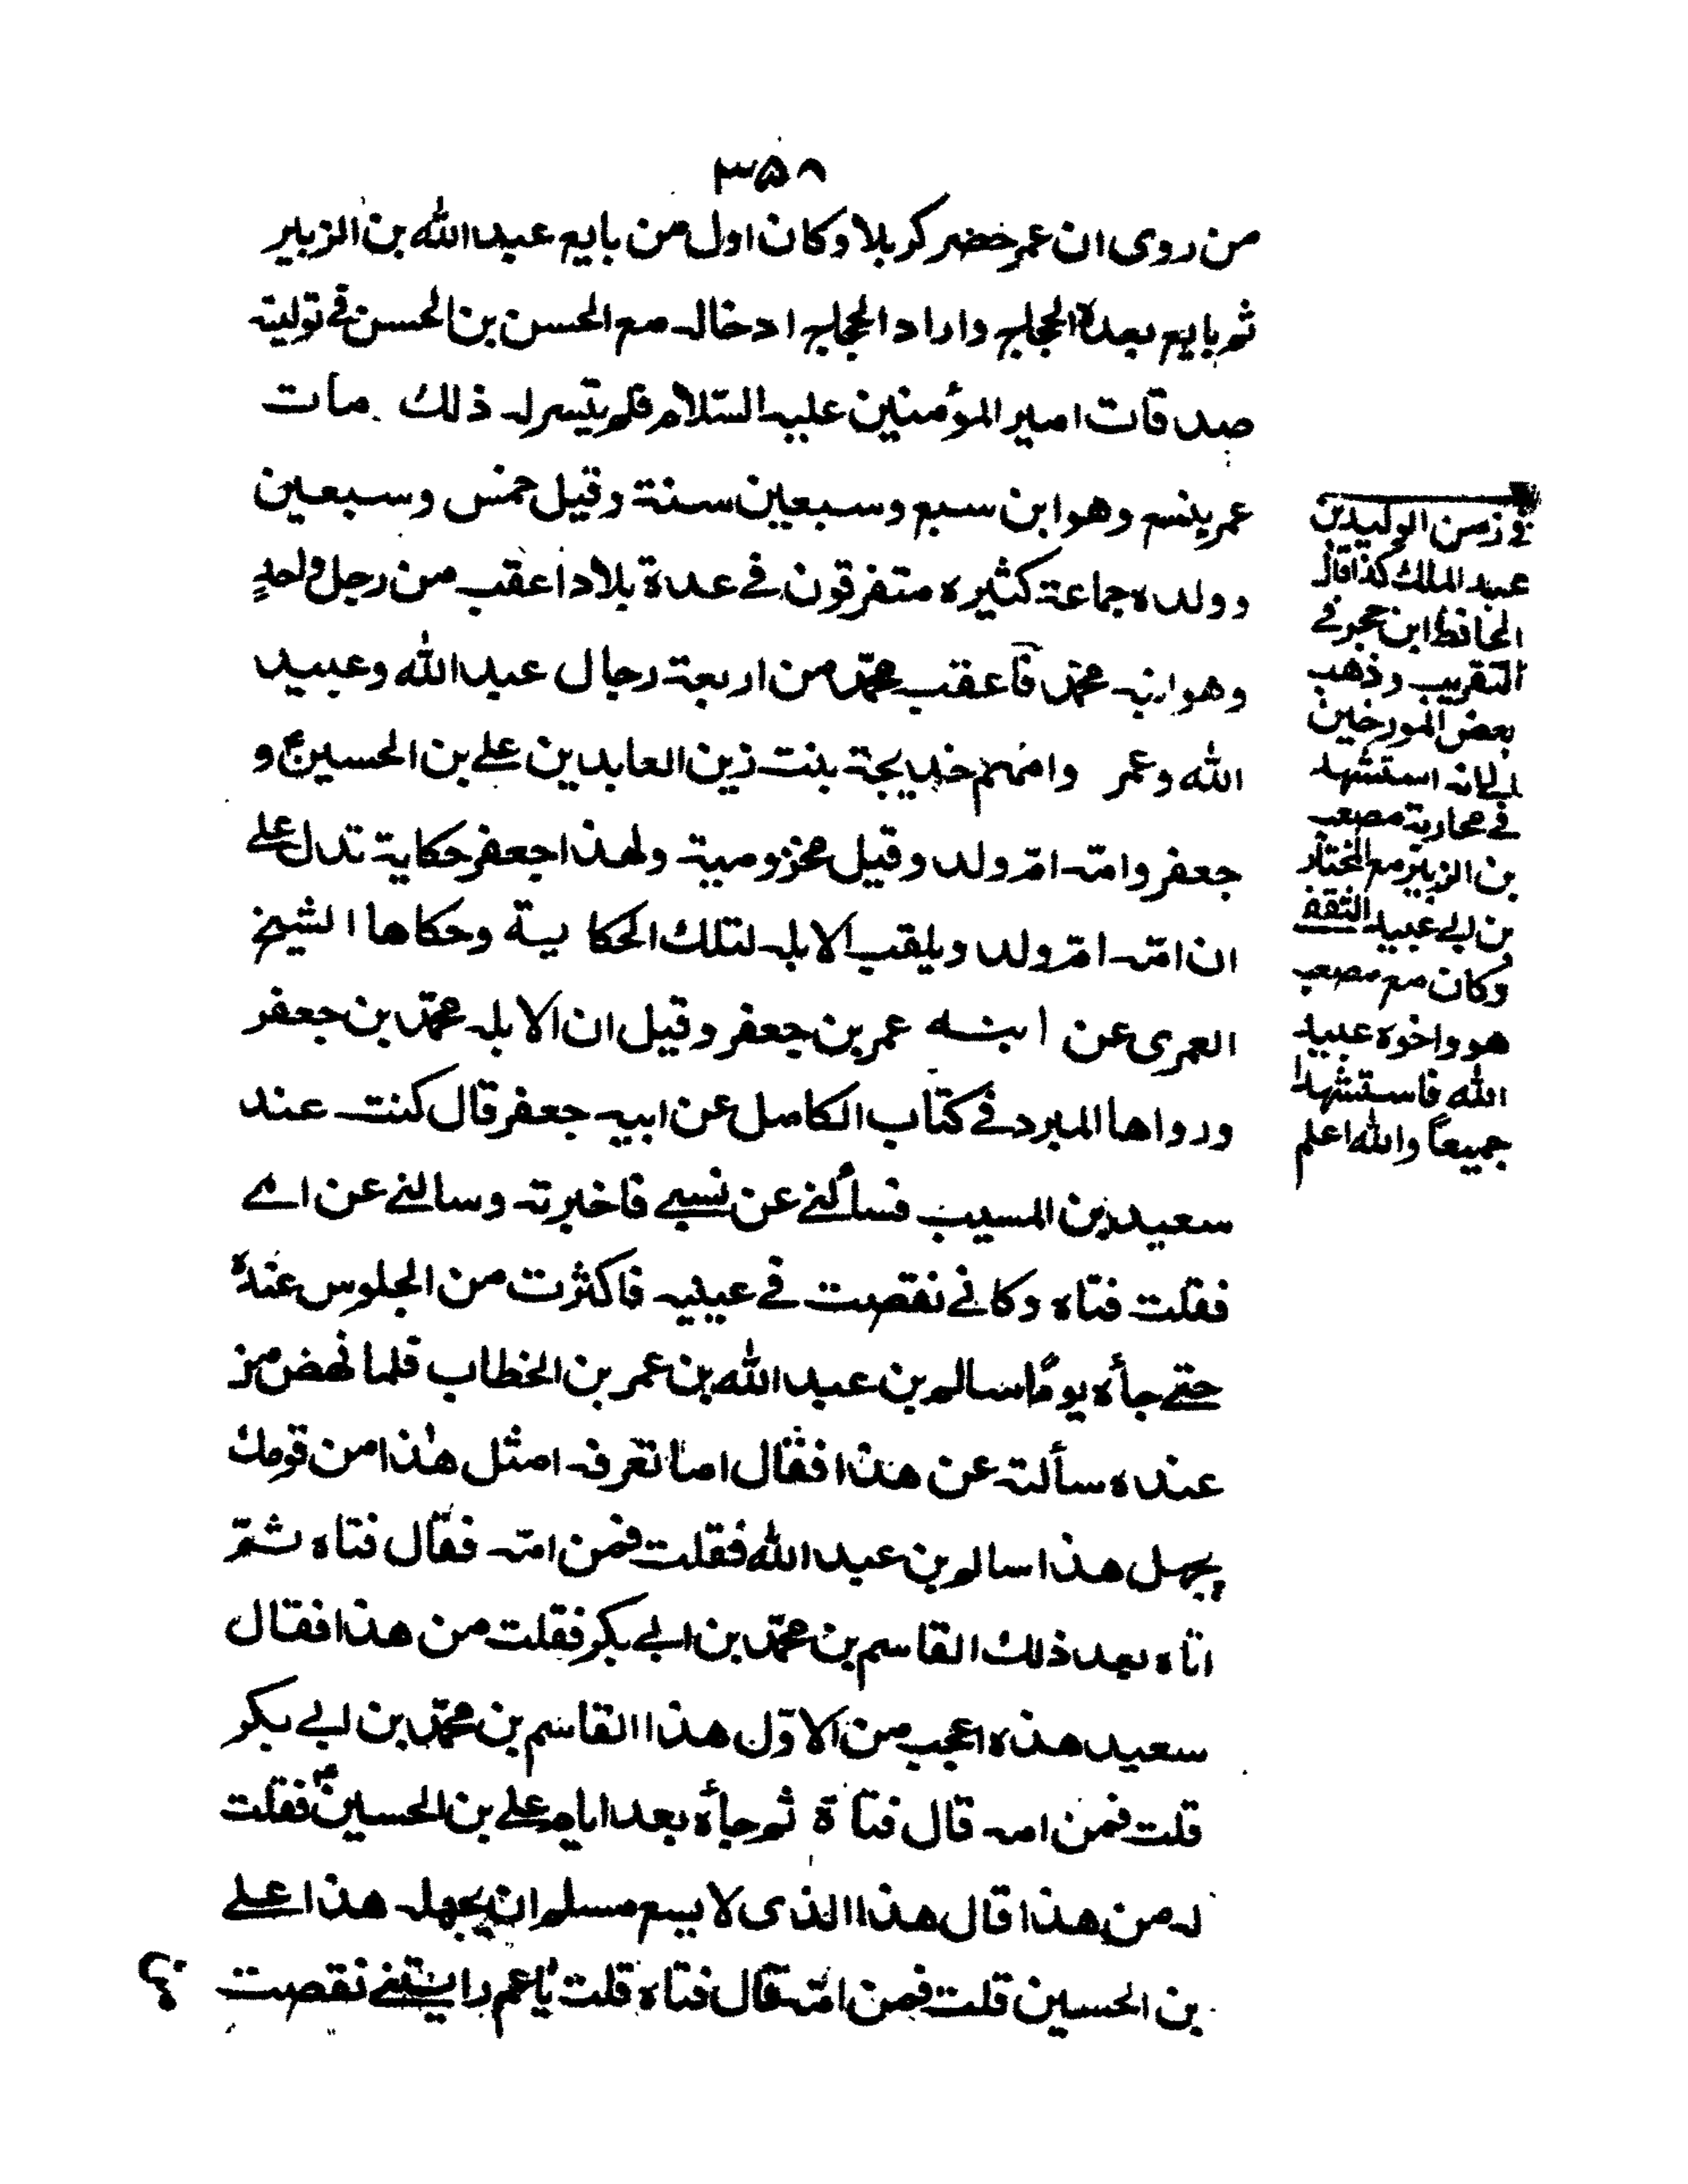 ۳۵۸
من روى ان عمر حضر كربلا وكان اول من بايع عبد الله بن الزبير
ثم بايع بعدہ الحجاج واراد الحجاج ادخاله مع الحسن بن الحسن فے تولیته
صدقات امير المؤمنين عليه السّلام فلم يتيسر له ذلك مات
عمر بينبع وهو ابن سبع وسبعين سنة وقيل خمس وسبعين
وولده جماعة كثيره متفرقون فے عدة بلاد اعقب من رجل واحدٍ
وهو ابنه محمّد فاعقب محمّد من اربعة رجال عبد الله وعبيد
الله وعمر وامّهم خديجة بنت زين العابدين علے بن الحسينؑ و
جعفر وامّه امّ ولد وقيل مخزومية ولهذا جعفر حكاية تدل علے
ان امّه امّ ولد ويلقب الابله لتلك الحكاية وحكاها الشيخ
العمرى عن ابنه عمر بن جعفر وقيل ان الابله محمّد بن جعفر
ورواها المبرد فے كتاب الكامل عن ابيه جعفر قال كنت عند
سعيد بن المسيب فسألنے عن نسبے فاخبرته وسالنے عن امے
فقلت فتاه وكانے نقصت فے عينيه فاكثرت من الجلوس عندہ
حتے جأه يومًا سالم بن عبد الله بن عمر بن الخطاب فلما نهض من
عنده سألته عن هذا فقال اما تعرفه امثل هذا من قومك
يجهل هذا سالم بن عبد الله فقلت فمن امّه فقال فتاه ثمّ
اتاه بعد ذلك القاسم بن محمّد بن ابے بكر فقلت من هذا فقال
سعيد هذه اعجب من الاوّل هذا القاسم بن محمّد بن ابے بكر
قلت فمن امه قال فتاة ثم جأه بعد ايام علے بن الحسينؑ فقلت
له من هذا قال هذا الذى لا يسع مسلم ان يجهله هذا علے
بن الحسين قلت فمن امّه قال فتاه قلت يا عم رايتنے نقصت
فے
فے زمن الوليد بن
عبد الملك كذا قال
الحافظ ابن حجر فے
التقريب وذهب
بعض المورخين
الے انه استشهد
فے محاربة مصعب
بن الزبير مع المختار
بن ابے عبيد الثقفے
وكان مع مصعب
هو واخوه عبيد
الله فاستشهدا
جميعاً والله اعلم